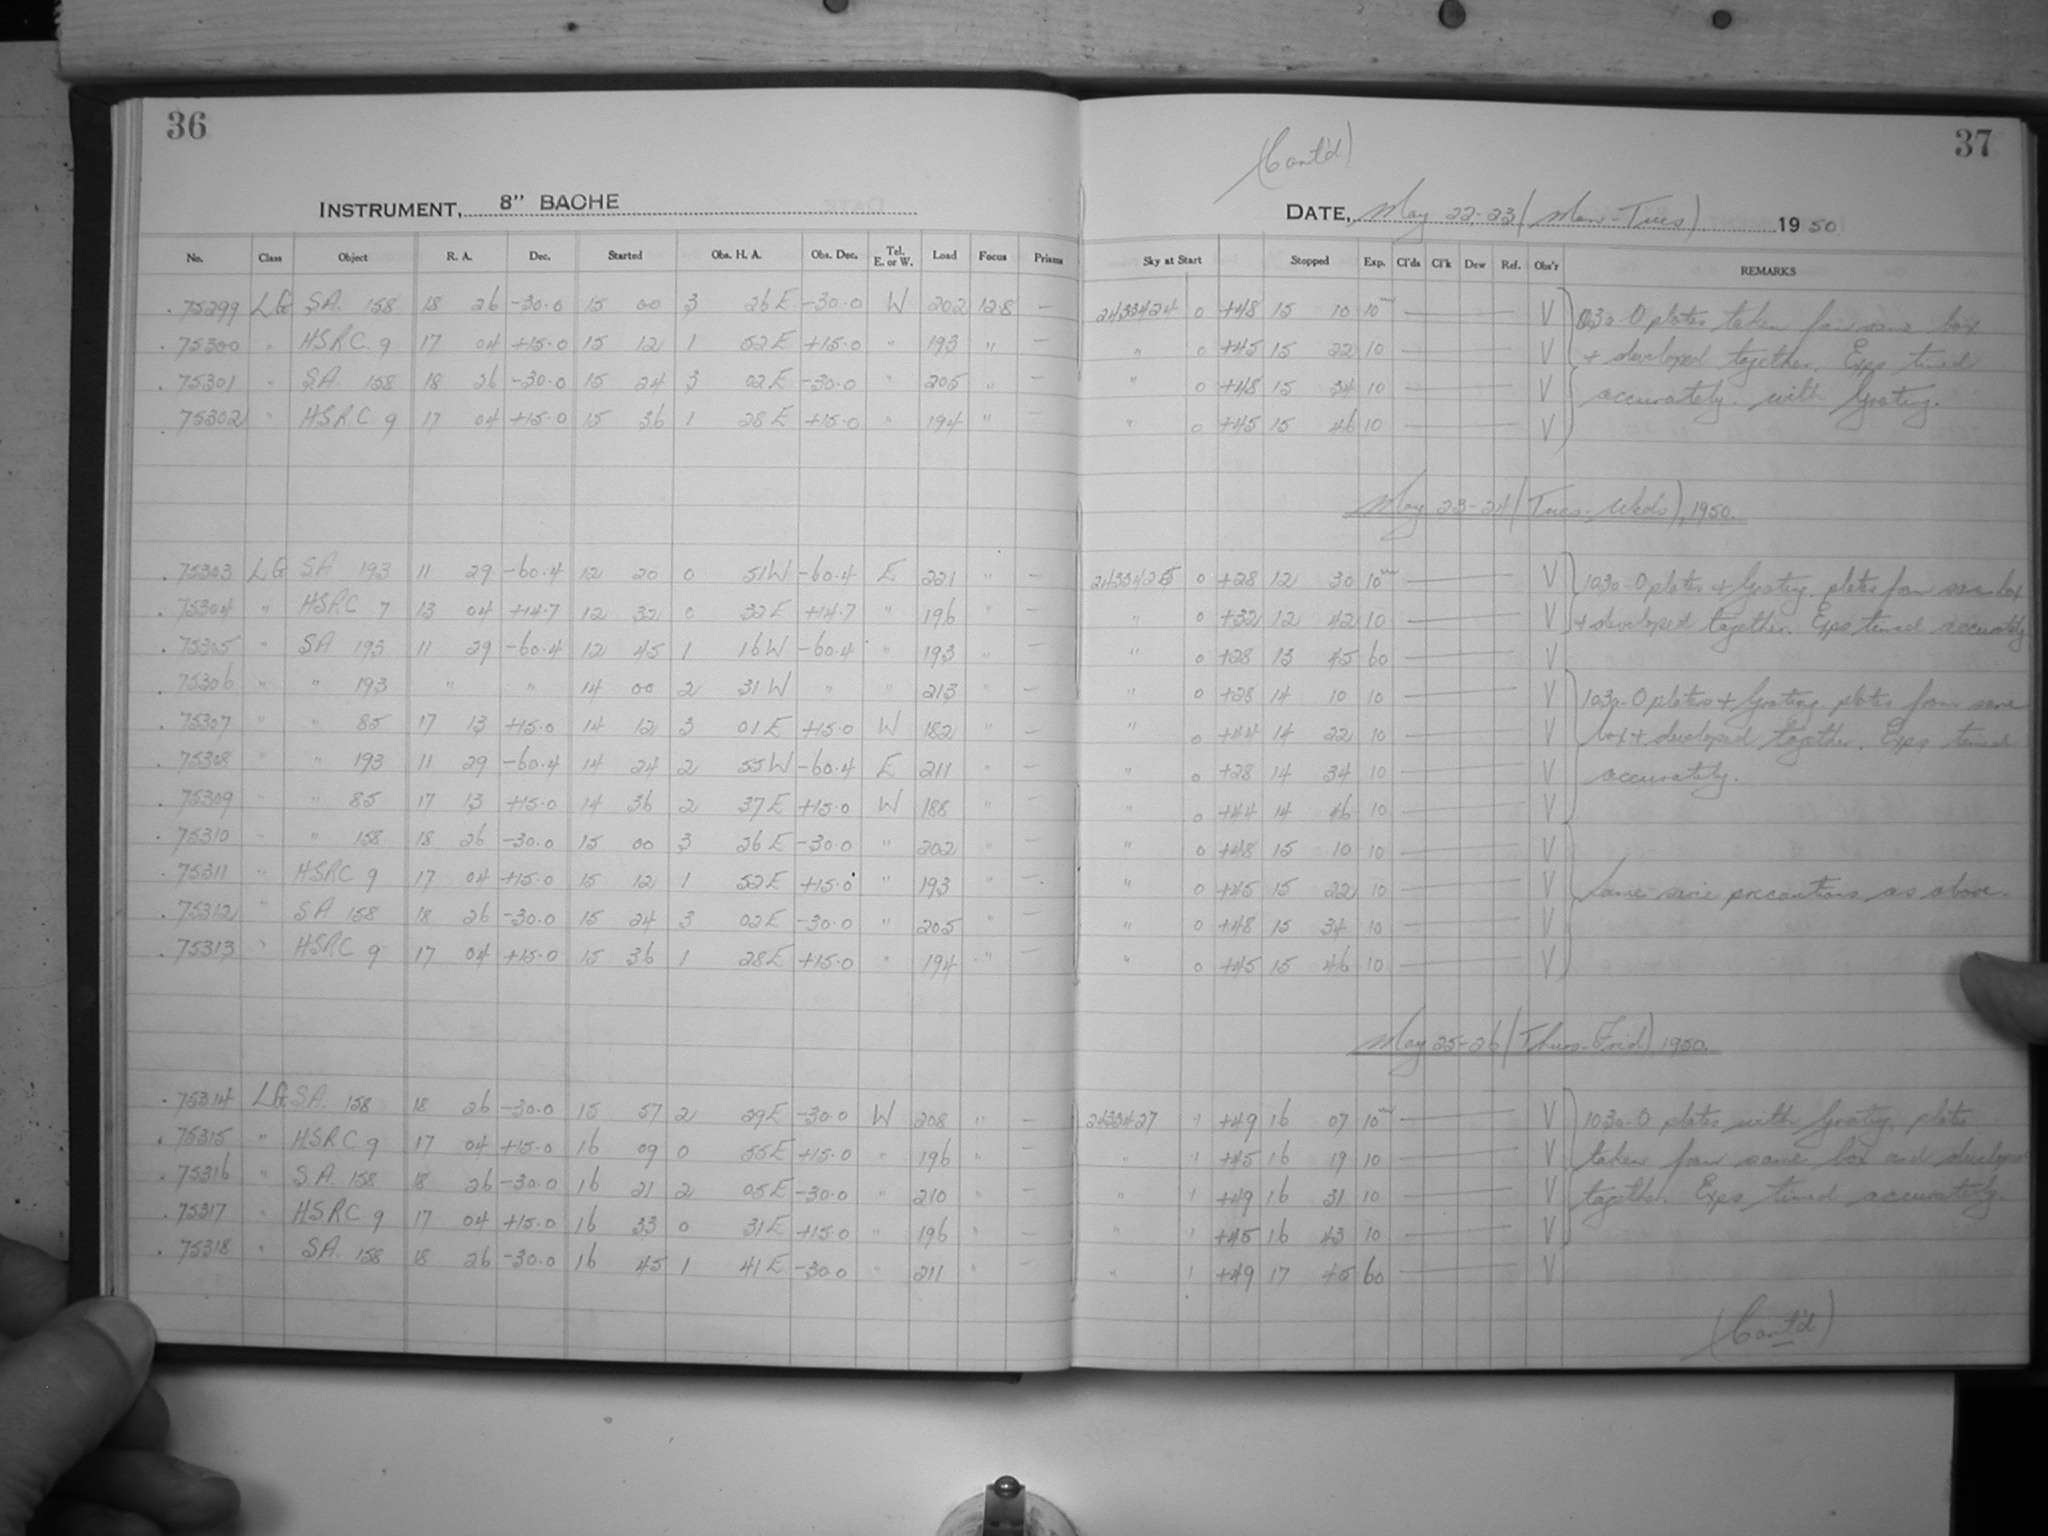 36
INSTRUMENT, 8" BACHE
No. Class Object R. A. Dec. Started Obs. H. A. Obs. Dec. Tel. E. or W. Load Focus Prisms
75299 LG SA. 158 18 26 -30.0 15 00 3 26E -30.0 W 202 12.8 —
75300 " HSRC 9 17 04 +15.0 15 12 1 52E +15.0 " 193 " —
75301 " SA. 158 18 26 -30.0 15 24 3 02E -30.0 " 205 " —
75302 " HSRC 9 17 04 +15.0 15 36 1 28E +15.0 " 194 " —
75303 LG SA 193 11 29 -60.4 12 20 0 51W -60.4 E 221 " —
75304 " HSRC 7 13 04 +14.7 12 32 0 32E +14.7 " 196 "
75305 " SA 193 11 29 -60.4 12 45 1 16W -60.4 " 193 " —
75306 " " 193 " " 14 00 2 31W " " 213 " —
75307 " " 85 17 13 +15.0 14 12 3 01E +15.0 W 182 " —
75308 " " 193 11 29 -60.4 14 24 2 55W -60.4 E 211 " —
75309 " " 85 17 13 +15.0 14 36 2 37E +15.0 W 188 " —
75310 " " 158 18 26 -30.0 15 00 3 26E -30.0 " 202 " —
75311 " HSRC 9 17 04 +15.0 15 12 1 52E +15.0 " 193 " —
75312 " SA 158 18 26 -30.0 15 24 3 02E -30.0 " 205 " —
75313 " HSRC 9 17 04 +15.0 15 36 1 28E +15.0 " 194 " —
75314 LG S.A. 158 18 26 -30.0 15 57 2 29E -30.0 W 208 " —
75315 " HSRC 9 17 04 +15.0 16 09 0 55E +15.0 " 196 " —
75316 " S.A. 158 18 26 -30.0 16 21 2 05E -30.0 " 210 " —
75317 " HSRC 9 17 04 +15.0 16 33 0 31E +15.0 " 196 " —
75318 " SA. 158 18 26 -30.0 16 45 1 41E -30.0 " 211 " —
37
(Cont'd)
DATE, May 22-23 (Mon-Tues) 1950
Sky at Start Stopped Exp. Cl'ds Cl'k Dew Ref. Obs'r REMARKS
2433424 0 +48 15 10 10m — V 103a-O plates taken from same box
" 0 +45 15 22 10 — V + developed together. Exps timed
" 0 +48 15 34 10 — V accurately. with Grating.
" 0 +45 15 46 10 — V
May 23-24 (Tues-Weds), 1950.
2433425 0 +28 12 30 10m — V 103a-O plates + Grating. plates from same box
" 0 +32 12 42 10 — V + developed together. Exps timed accurately
" 0 +28 13 45 60 — V
" 0 +28 14 10 10 — V 103a-O plates + Grating plates from same
" 0 +44 14 22 10 — V box + developed together. Exps timed
" 0 +28 14 34 10 — V accurately.
" 0 +44 14 46 10 — V
" 0 +48 15 10 10 — V
" 0 +45 15 22 10 — V Same precautions as above.
" 0 +48 15 34 10 — V
" 0 +45 15 46 10 — V
May 25-26 (Thurs-Frid), 1950.
2433427 1 +49 16 07 10m — V 103a-O plates with Grating, plates
" 1 +45 16 19 10 — V taken from same box and developed
" 1 +49 16 31 10 — V together. Exps timed accurately.
" 1 +45 16 43 10 — V
" 1 +49 17 45 60 — V
(Cont'd)